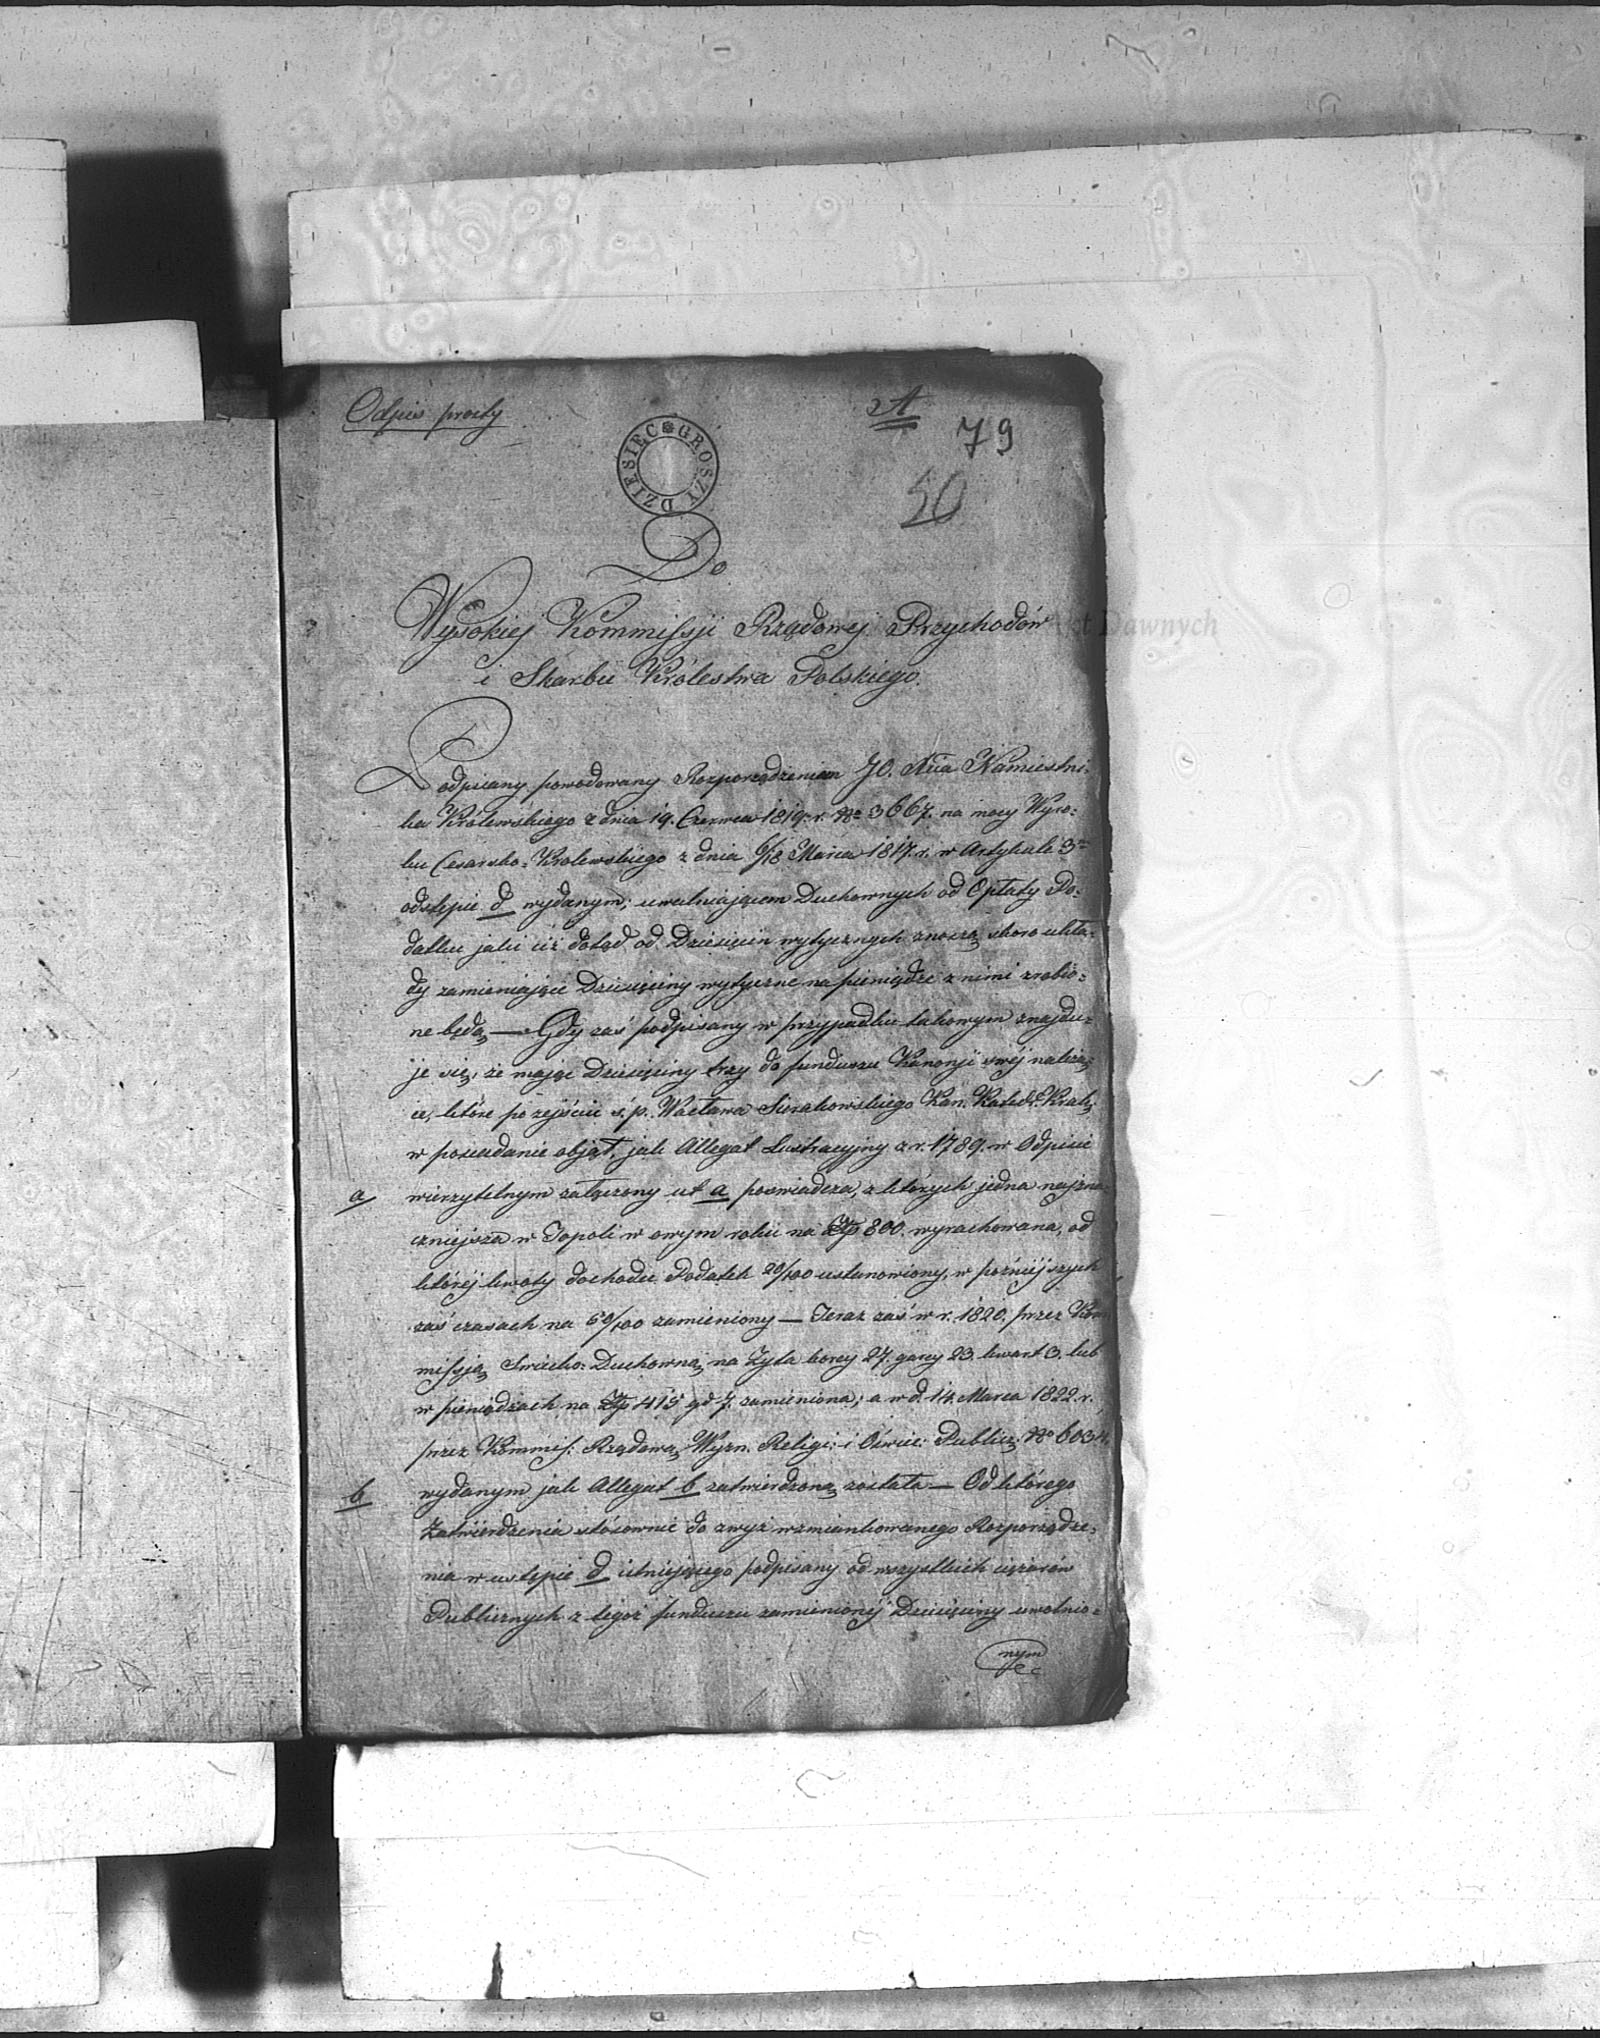 Odpis prosty
A
79
50
DZIESIĘC GROSZY
Do
Wysokiej Kommissji Rządowej Przychodów
i Skarbu Królestwa Polskiego.
Akt Dawnych
Podpisany powodowany Rozporządzeniem JO. Xcia Namiestni:
ka Królewskiego z dnia 19. Czerwca 1819. r. No 3667. na mocy Wyro:
ku Cesarsko: Królewskiego z dnia 6/18 Marca 1817. r. w Artykule 3m
odstępie d wydanym; uwalniającem Duchownych od Opłaty Po:
datku jaki iż dotąd od Dziesięcin wytycznych znoszą, skoro ukła:
dy zamieniające Dziesięciny wytyczne na pieniądze z nimi zrobio:
ne będą — Gdy zaś podpisany w przypadku takowym znajdu:
je się, że mając Dziesięciny trzy do funduszu Kanonji swej należą:
ce, które po zejściu ś. p. Wacława Sierakowskiego Kan. Katedr. Krak.
w posiadanie objął, jak Allegat Lustracyjny z r. 1789. w Odpisie
a wierzytelnym załączony ut a poświadcza, z których jedna najzna:
czniejsza w Topoli w owym roku na Złp 800. wyrachowana, od
której kwoty dochodu Podatek 20/100 ustanowiony, w poźniejszych
zaś czasach na 50/100 zamieniony — Teraz zaś w r. 1820. przez Kom
missją Swiecko: Duchowną, na Zyta korcy 27. garcy 23. kwart 3. lub
w pieniądzach na Złp 415 gr 7. zamieniona; a w d. 14. Marca 1822. r.
przez Kommis: Rządową Wyzn. Religi: i Oświec: Publicz: No 6034
b wydanym jak Allegat b zatwierdzoną została — Od którego
Zatwierdzenia stósownie do zwyż wzmiankowanego Rozporządze:
nia w ustępie d istniejącego podpisany od wszystkich ciężarów
Publicznych z tegoż funduszu zamienionéj Dziesięciny uwolnio:
nym